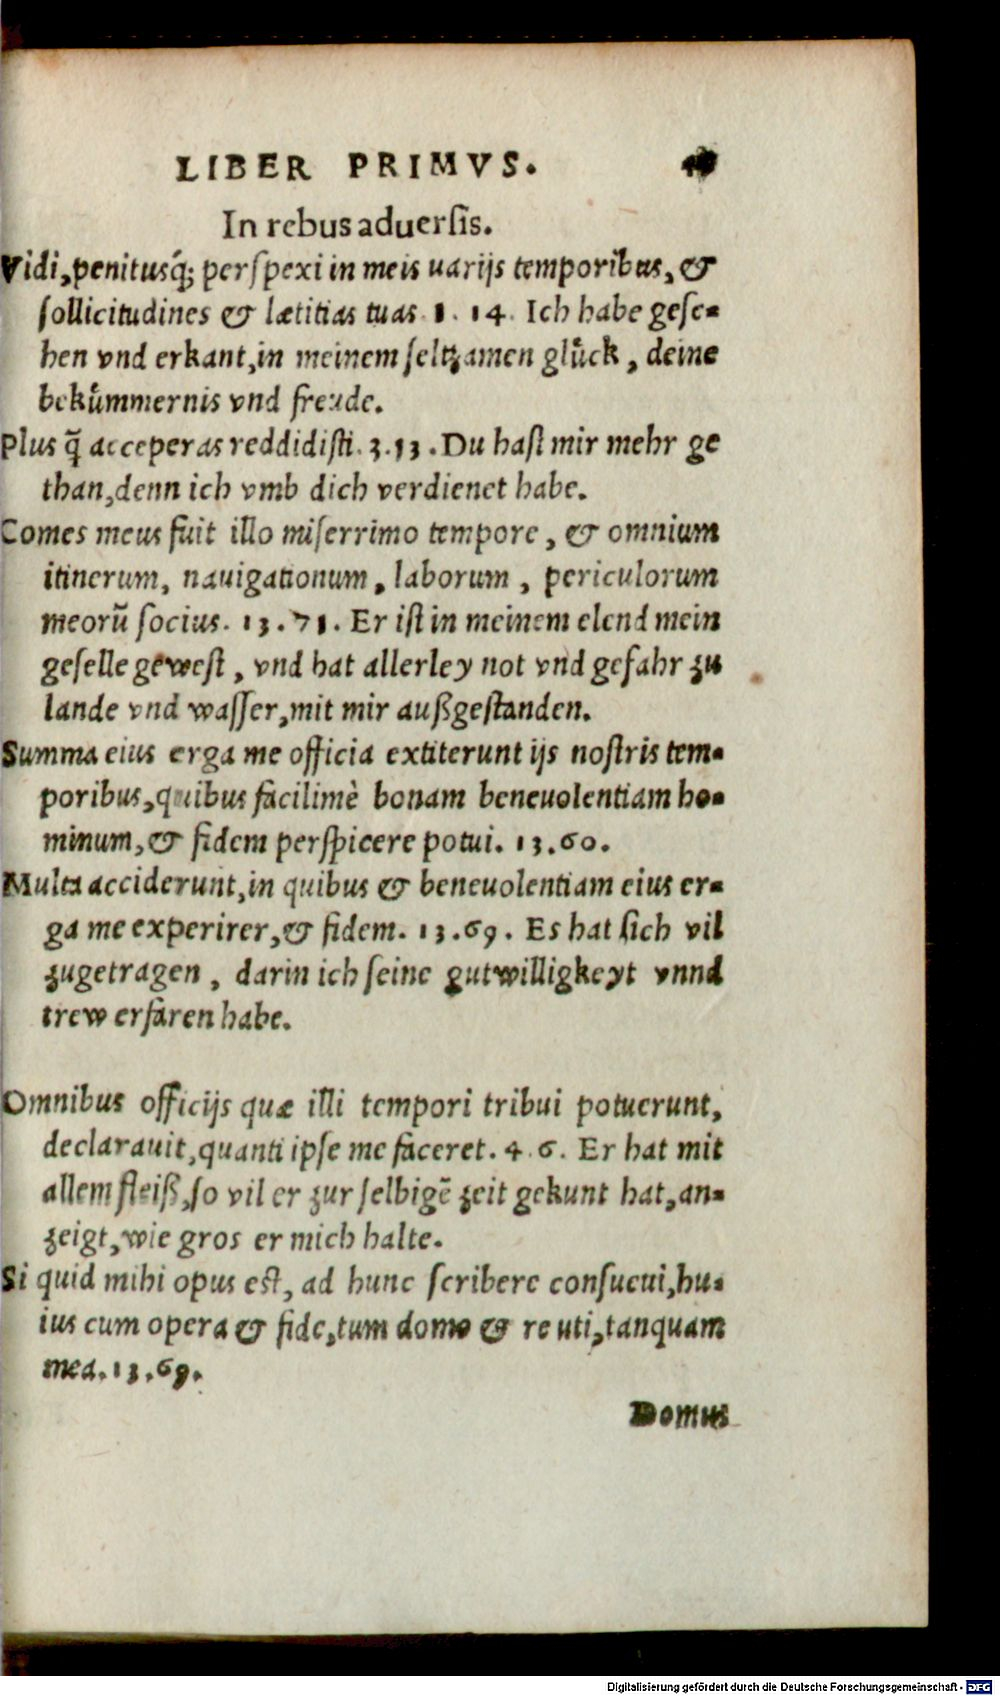 LIBER PRIMVS.
In rebus aduersis.
Vidi, penitusq́; perspexi in meis uarijs temporibus, &
sollicitudines & lætitias tuas. 1. 14. Ich habe gese-
hen vnd erkant, in meinem seltzamen glůck, deine
bekůmmernis vnd freude.
Plus q̃ acceperas reddidisti. 3. 13. Du hast mir mehr ge
than, denn ich vmb dich verdienet habe.
Comes meus fuit illo miserrimo tempore, & omnium
itinerum, nauigationum, laborum, periculorum
meorũ socius. 13. 71. Er ist in meinem elend mein
geselle gewest, vnd hat allerley not vnd gefahr zu
lande vnd wasser, mit mir außgestanden.
Summa eius erga me officia extiterunt ijs nostris tem-
poribus, quibus facilimè bonam beneuolentiam ho-
minum, & fidem perspicere potui. 13. 60.
Multa acciderunt, in quibus & beneuolentiam eius er-
ga me experirer, & fidem. 13. 69. Es hat sich vil
zugetragen, darin ich seine gutwilligkeyt vnnd
trew erfaren habe.
Omnibus officijs quæ illi tempori tribui potuerunt,
declarauit, quanti ipse me faceret. 4. 6. Er hat mit
allem fleiß, so vil er zur selbigẽ zeit gekunt hat, an-
zeigt, wie gros er mich halte.
Si quid mihi opus est, ad hunc scribere consueui, hu-
ius cum opera & fide, tum domo & re uti, tanquam
mea. 13. 69.
Domus
Digitalisierung gefördert durch die Deutsche Forschungsgemeinschaft - DFG